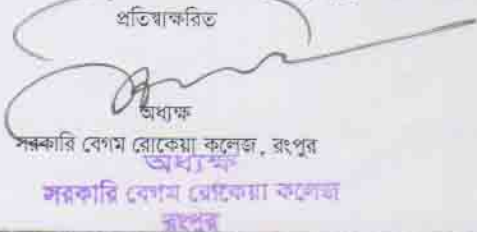 প্রতিস্বাক্ষরিত
অধ্যক্ষ
সরকারি বেগম রোকেয়া কলেজ, রংপুর
অধ্যক্ষ
সরকারি বেগম রোকেয়া কলেজ
রংপুর